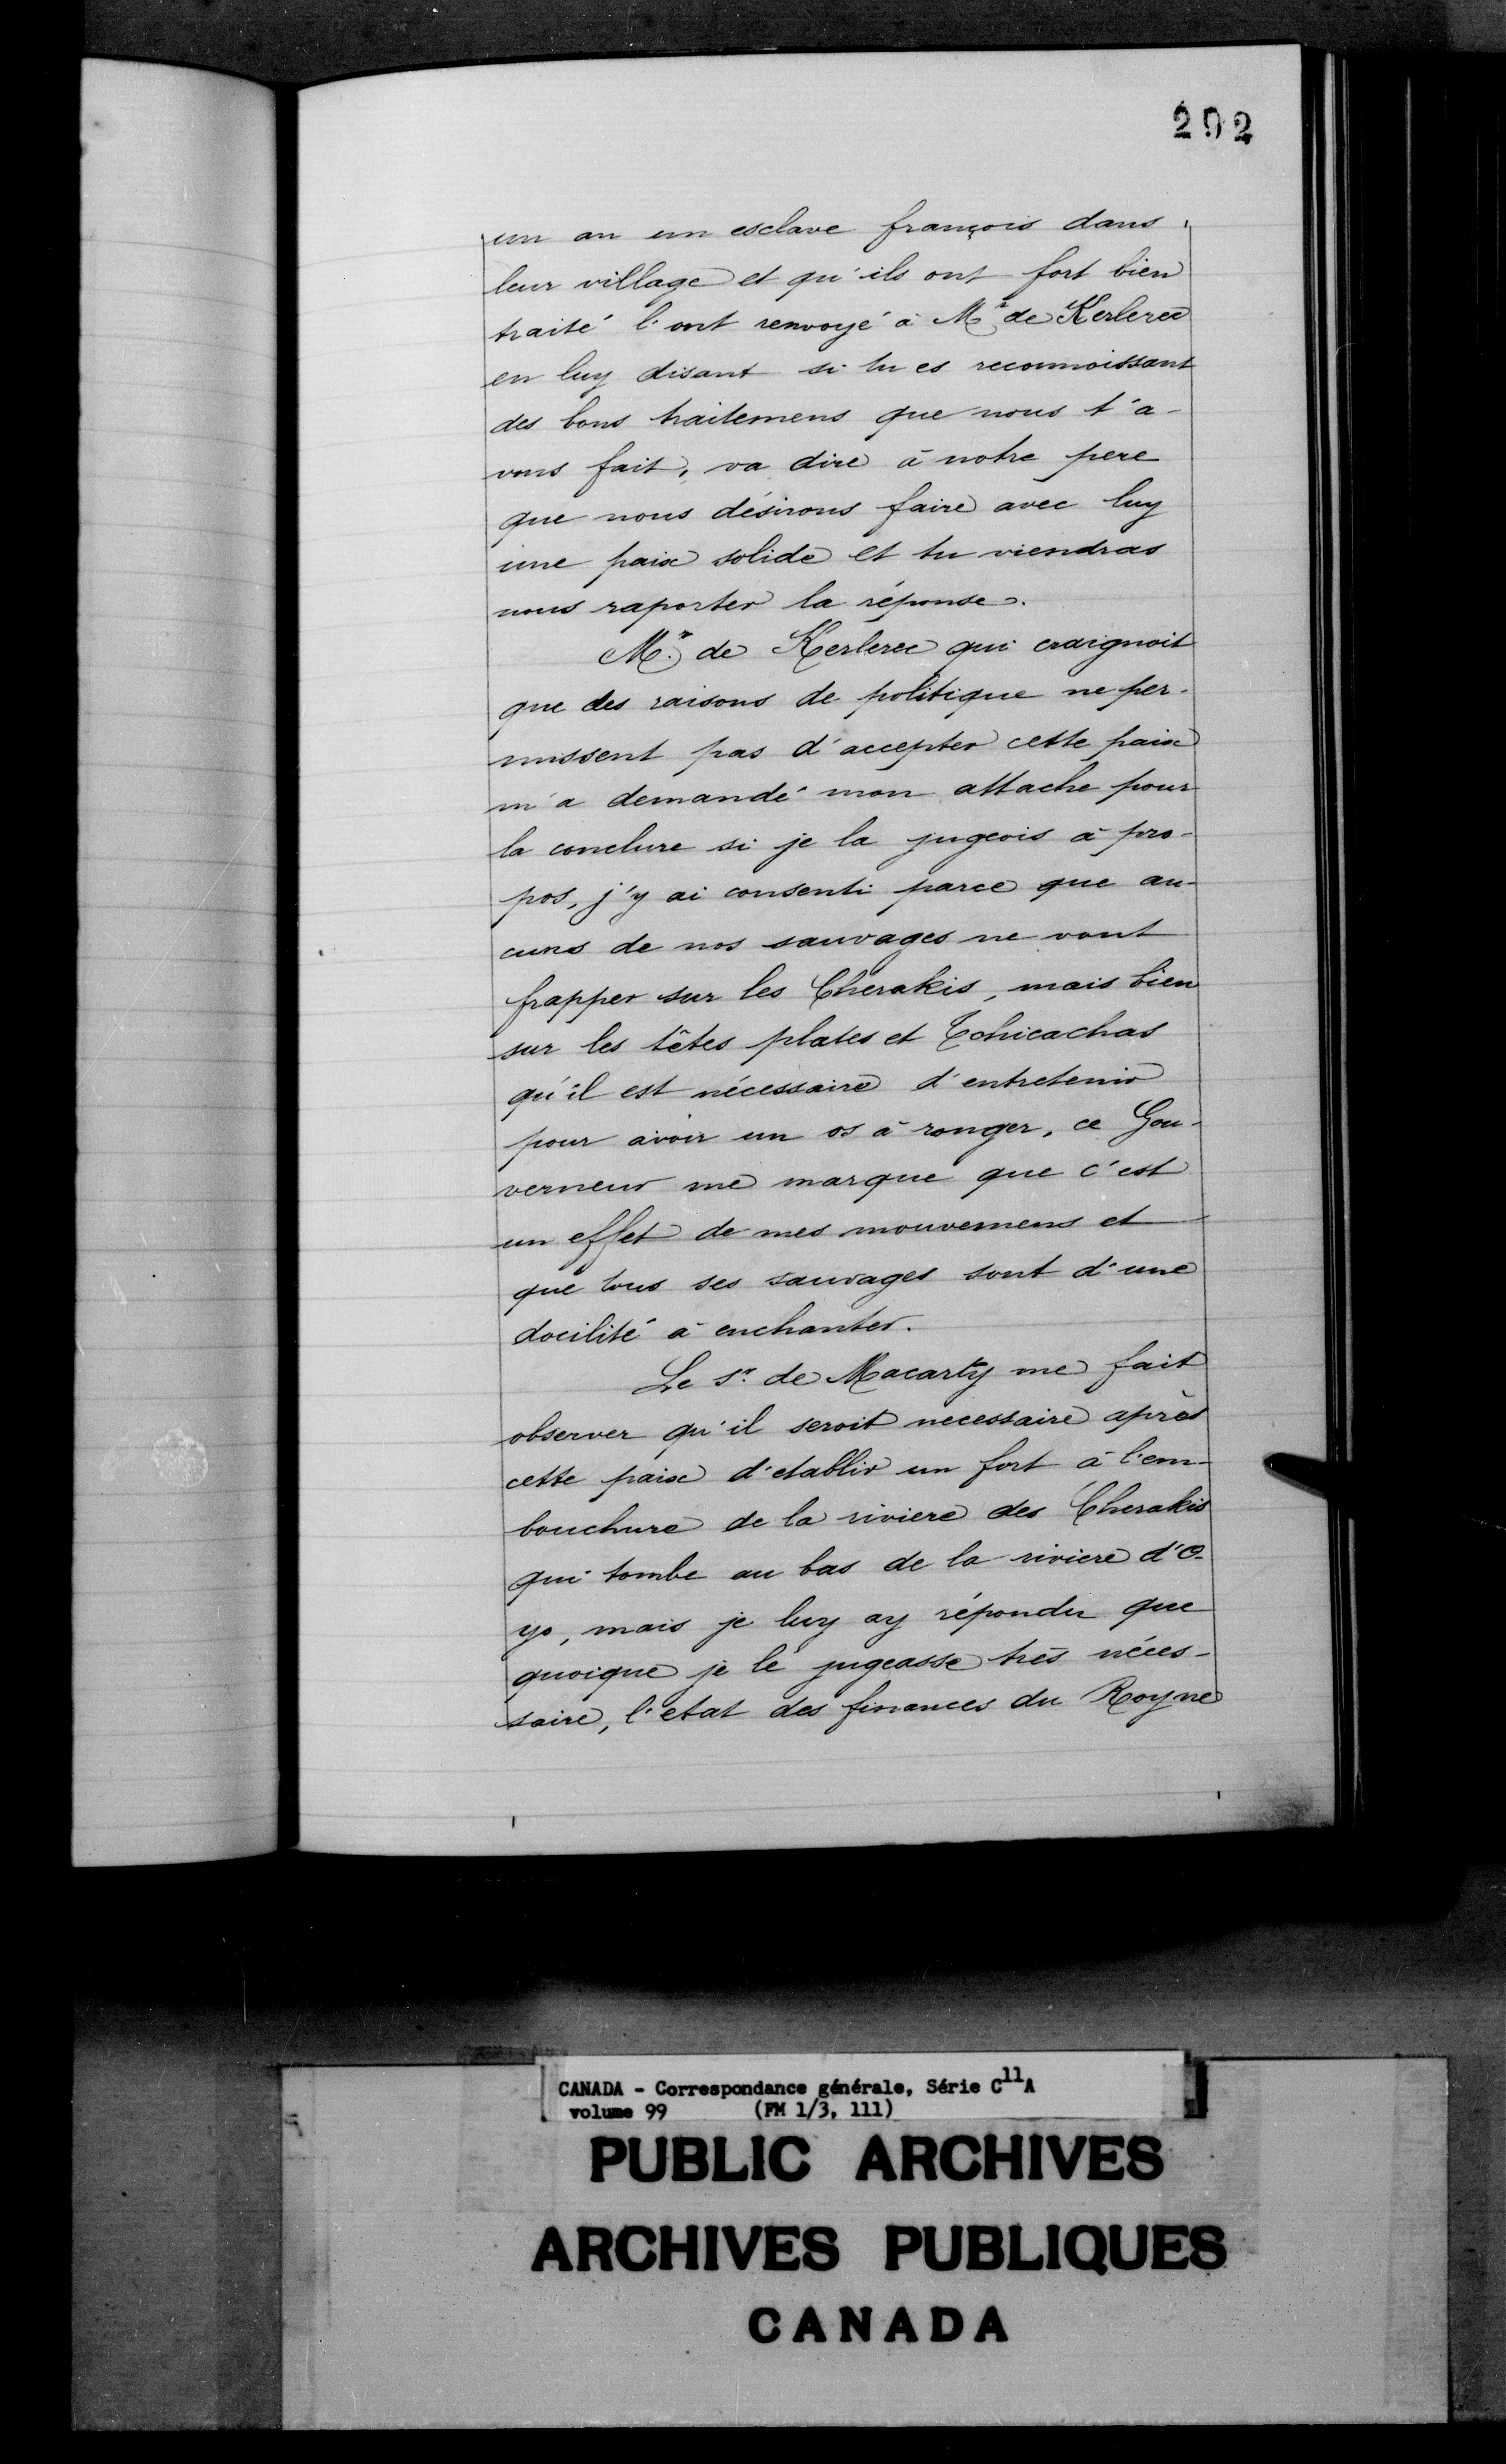 292
un an un esclave françois dans
leur village et qu'ils ont fort bien
traité l'ont renvoyé à Mr de Kerlerec
en luy disant si tu es reconnoissant
des bons traitemens que nous t'a-
vons fait, va dire à notre pere
que nous désirons faire avec luy
une paix solide et tu viendras
nous raporter la réponse.
Mr. de Kerlerec qui craignoit
que des raisons de politique ne per-
missent pas d'accepter cette paix
m'a demandé mon attache pour
la conclure si je la jugeois à pro-
pos, j'y ai consenti parce que au-
cuns de nos sauvages ne vont
frapper sur les Cherakis, mais bien
sur les têtes plates et Tchicachas
qu'il est nécessaire d'entretenir
pour avoir un os à ronger, ce Gou-
verneur me marque que c'est
un effet de mes mouvemens et
que tous ses sauvages sont d'une
docilité à enchanter.
Le sr. de Macarty me fait
observer qu'il seroit necessaire après
cette paix d'etablir un fort à l'em-
bouchure de la riviere des Cherakis
qui tombe au bas de la riviere d'O-
yo, mais je luy ay répondu que
quoique je le jugeasse très néces-
saire, l'etat des finances du Royne
CANADA - Correspondance générale, Série C11A
volume 99 (FM 1/3, 111)
PUBLIC ARCHIVES
ARCHIVES PUBLIQUES
CANADA